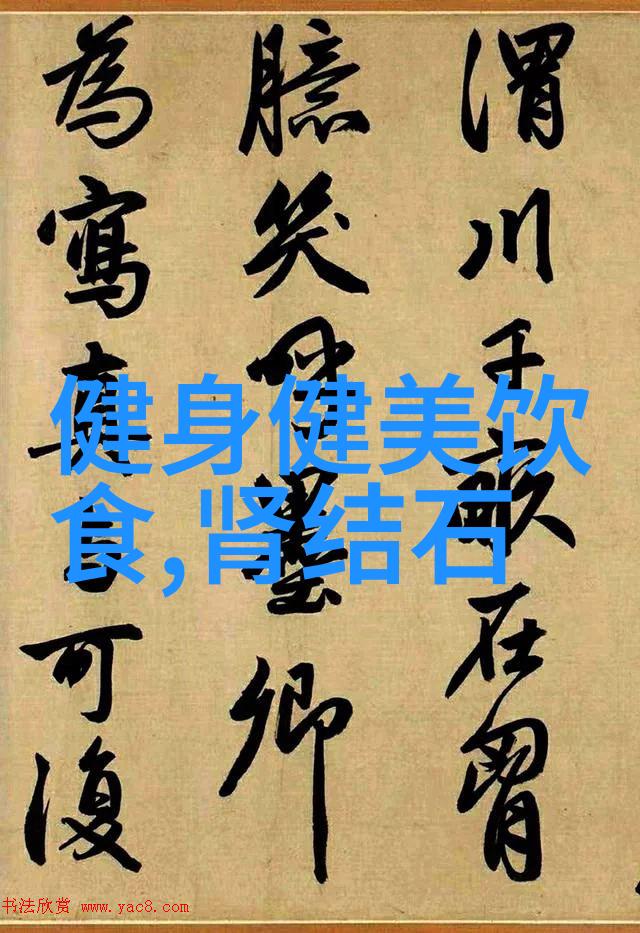 渭川千畝在胷
臆笑呼墨卿
為寫真可復
健身健美饮
食,肾结石
书法欣赏 www.yac8.com